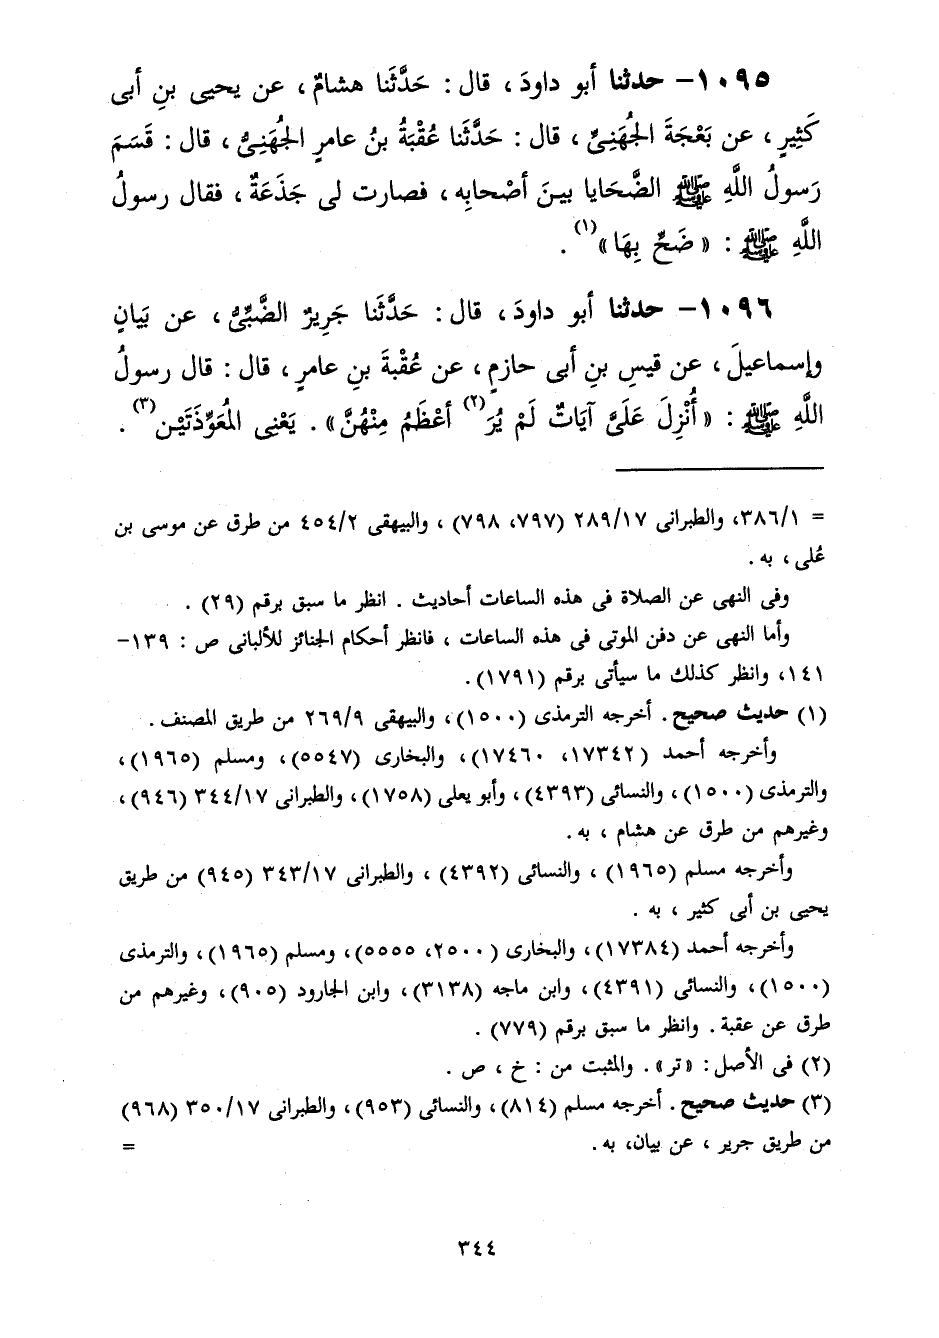 ١٠٩٥- حدثنا أبو داودَ ، قال : حَدَّثَنا هشامٌ ، عن يحيى بنِ أبى
كَثِيرٍ ، عن بَعْجَةَ الجُهَنِىِّ ، قال : حَدَّثَنا عُقْبَةُ بنُ عامرٍ الجُهَنِىُّ ، قال : قَسَمَ
رَسولُ اللَّهِ ﷺ الضَّحَايا بينَ أصْحابِه ، فصارت لى جَذَعَةٌ ، فقال رسولُ
اللَّهِ ﷺ : « ضَحِّ بِهَا »(١) .
١٠٩٦- حدثنا أبو داودَ ، قال : حَدَّثَنا جَرِيرٌ الضَّبِّىُّ ، عن بَيَانٍ
وإسماعيلَ ، عن قيسِ بنِ أبى حازمٍ ، عن عُقْبةَ بنِ عامرٍ ، قال : قال رسولُ
اللَّهِ ﷺ : « أُنْزِلَ عَلَىَّ آيَاتٌ لَمْ يُرَ(٢) أعْظَمُ مِنْهُنَّ » . يَعْنِى المُعَوِّذَتَيْن(٣) .
= ٣٨٦/١، والطبرانى ٢٨٩/١٧ (٧٩٧، ٧٩٨) ، والبيهقى ٤٥٤/٢ من طرق عن موسى بن
عُلى ، به .
وفى النهى عن الصلاة فى هذه الساعات أحاديث . انظر ما سبق برقم (٢٩) .
وأما النهى عن دفن الموتى فى هذه الساعات ، فانظر أحكام الجنائز للألبانى ص : ١٣٩-
١٤١، وانظر كذلك ما سيأتى برقم (١٧٩١) .
(١) حديث صحيح . أخرجه الترمذى (١٥٠٠)، والبيهقى ٢٦٩/٩ من طريق المصنف .
وأخرجه أحمد (١٧٣٤٢، ١٧٤٦٠)، والبخارى (٥٥٤٧)، ومسلم (١٩٦٥)،
والترمذى (١٥٠٠)، والنسائى (٤٣٩٣)، وأبو يعلى (١٧٥٨)، والطبرانى ٣٤٤/١٧ (٩٤٦)،
وغيرهم من طرق عن هشام ، به .
وأخرجه مسلم (١٩٦٥) ، والنسائى (٤٣٩٢) ، والطبرانى ٣٤٣/١٧ (٩٤٥) من طريق
يحيى بن أبى كثير ، به .
وأخرجه أحمد (١٧٣٨٤)، والبخارى (٢٥٠٠، ٥٥٥٥)، ومسلم (١٩٦٥)، والترمذى
(١٥٠٠)، والنسائى (٤٣٩١)، وابن ماجه (٣١٣٨)، وابن الجارود (٩٠٥)، وغيرهم من
طرق عن عقبة . وانظر ما سبق برقم (٧٧٩) .
(٢) فى الأصل : « تر » . والمثبت من : خ ، ص .
(٣) حديث صحيح . أخرجه مسلم (٨١٤)، والنسائى (٩٥٣)، والطبرانى ٣٥٠/١٧ (٩٦٨)
من طريق جرير ، عن بيان، به . =
٣٤٤